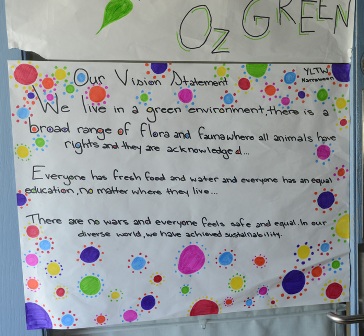 Oz GREEN
Our Vision Statement
YLTW
Narrabeen
We live in a green environment, there is a
broad range of flora and fauna where all animals have
rights and they are acknowledged...
Everyone has fresh food and water and everyone has an equal
education, no matter where they live...
There are no wars and everyone feels safe and equal. In our
diverse world, we have achieved sustainability.